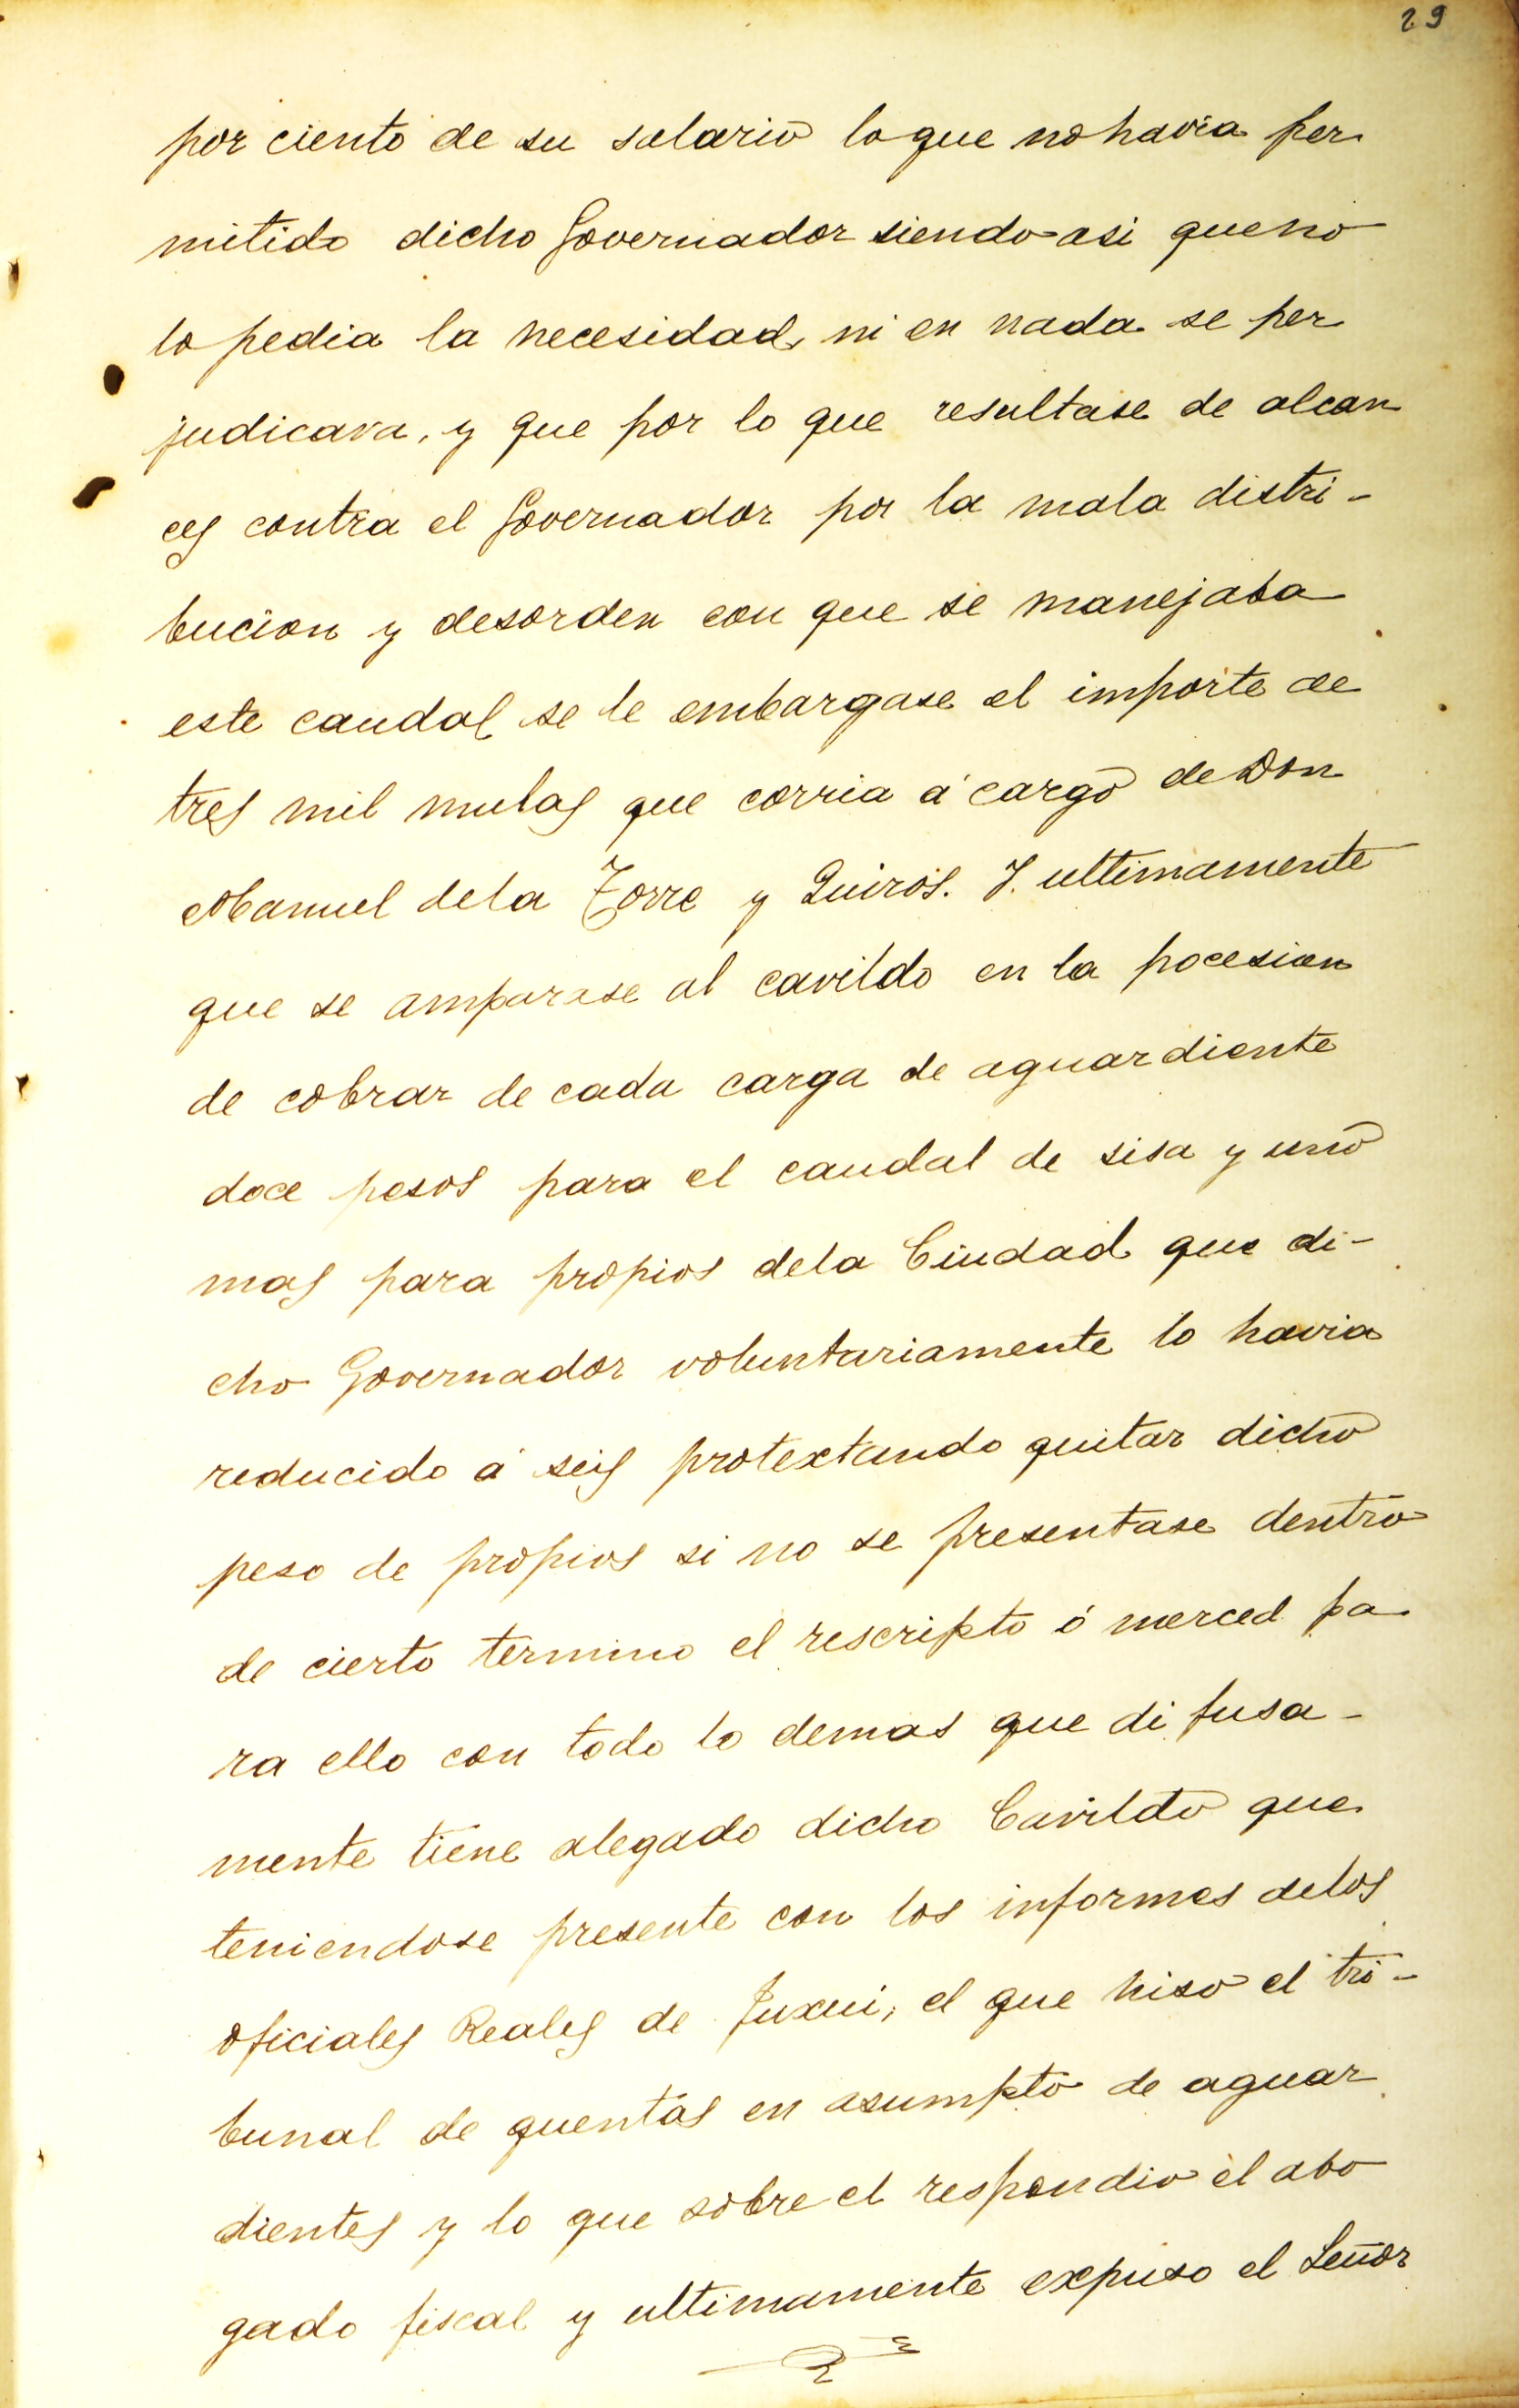 29
por ciento de su salario lo que no havia per
mitido dicho Governador siendo asi que no
lo pedia la necesidad, ni en nada se per
judicava, y que por lo que resultase de alcan
ces contra el Governador por la mala distri-
bucion y desorden con que se manejaba
este caudal se le embargase el importe de
tres mil mulas que corria á cargo de Don
Manuel dela Torre y Quiros. Y. ultimamente
que se amparase al cavildo en la pocesion
de cobrar de cada carga de aguardiente
doce pesos para el caudal de sisa y uno
mas para propios dela Ciudad que di-
cho Governador voluntariamente lo havia
reducido á seis protextando quitar dicho
peso de propios si no se presentase dentro
de cierto termino el rescripto ó merced pa
ra ello con todo lo demas que difusa-
mente tiene alegado dicho Cavildo que
teniendose presente con los informes delos
oficiales Reales de Juxui, el que hiso el tri-
bunal de quentas en asumpto de aguar
dientes y lo que sobre el respondio el abo
gado fiscal y ultimamente expuso el Señor